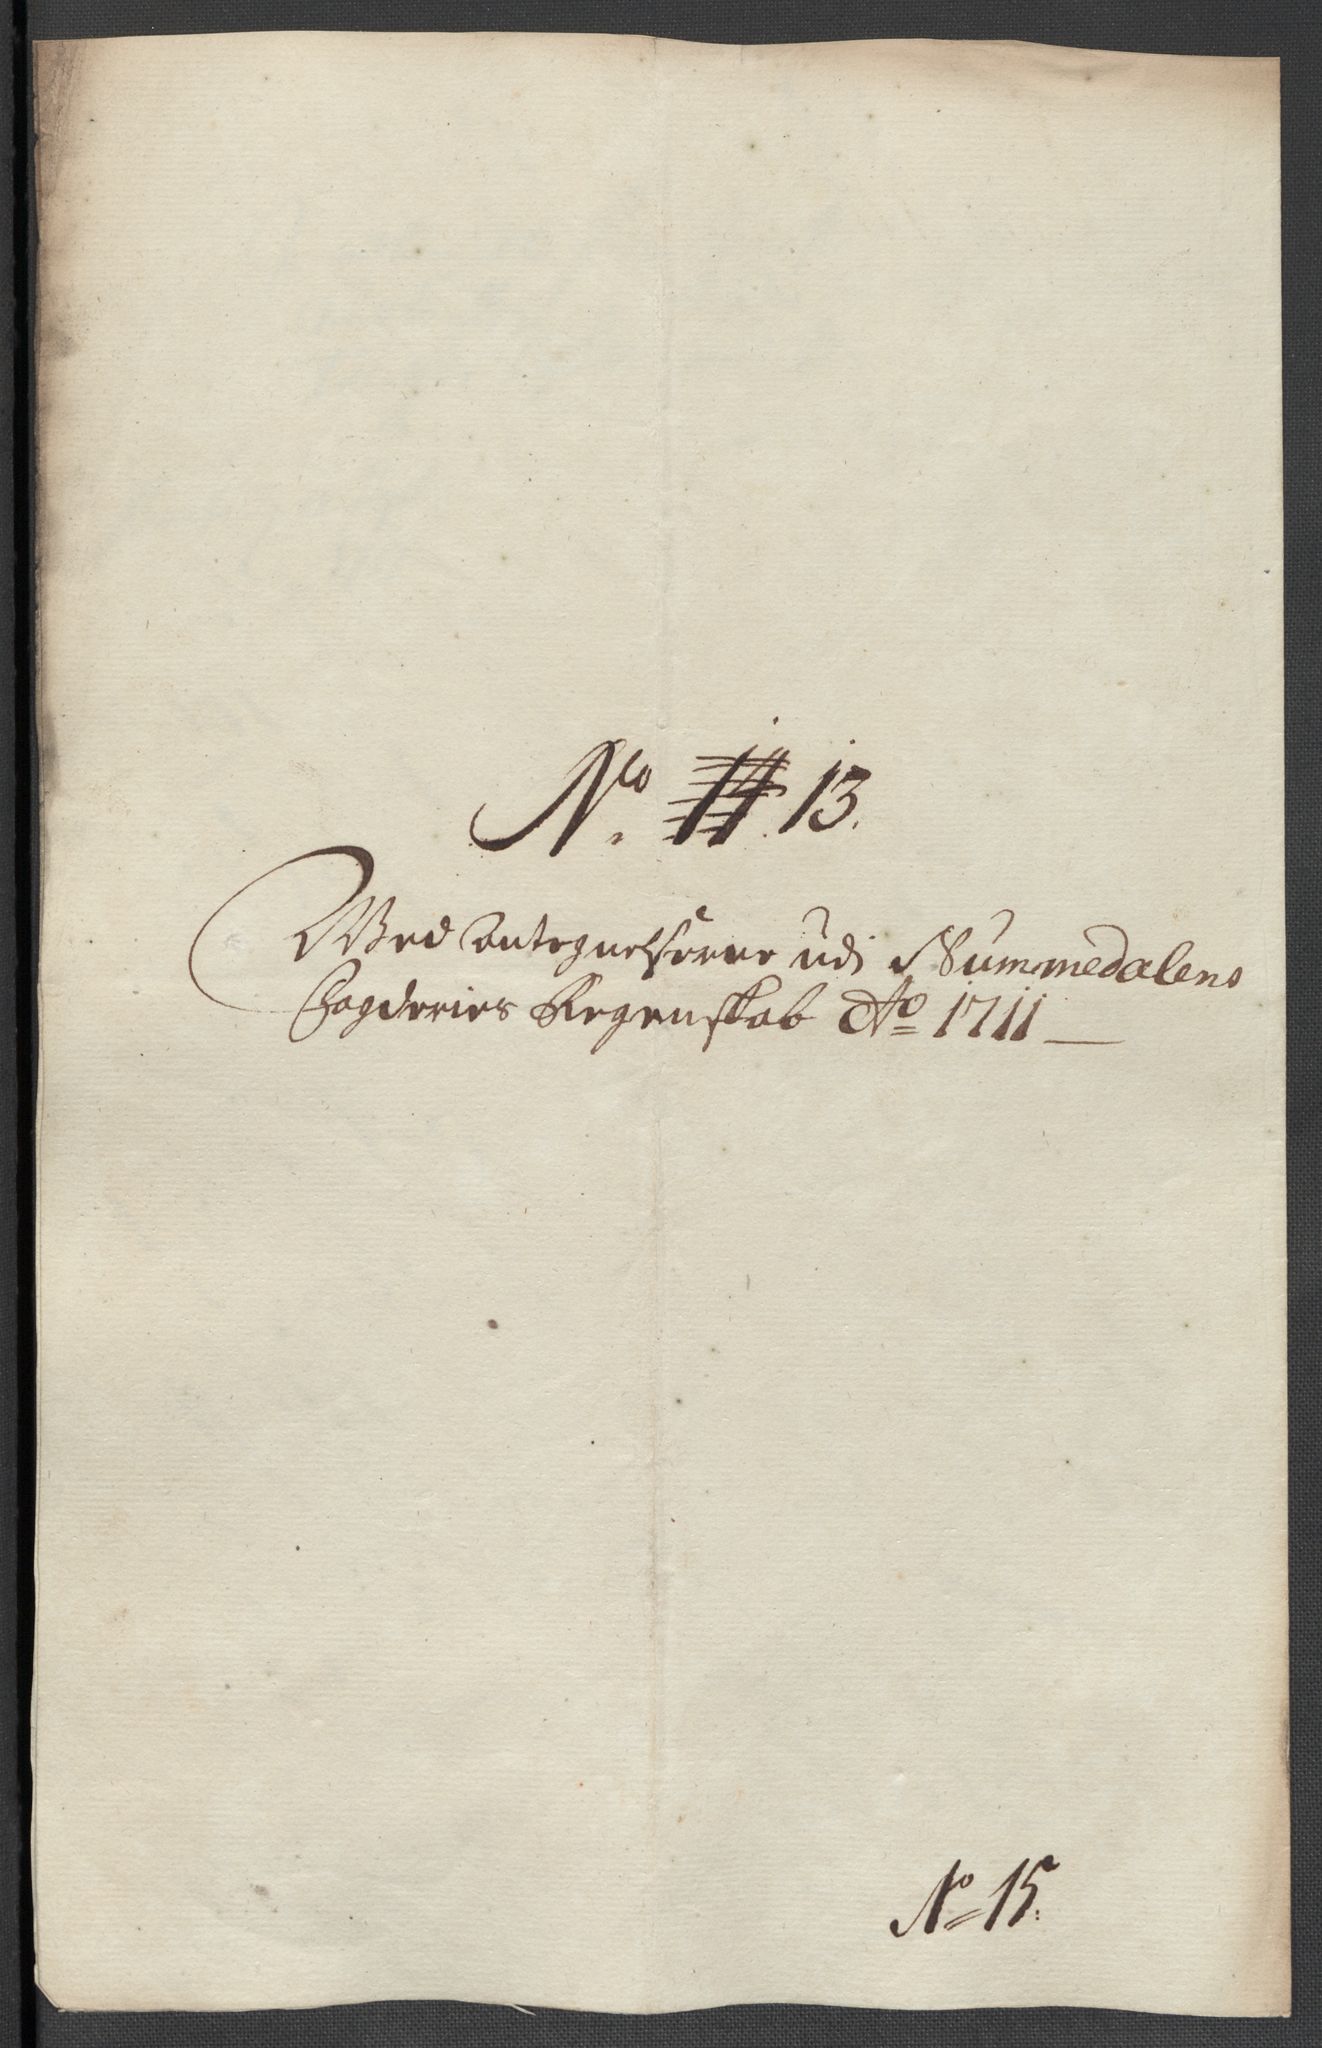 No. 14. 13.
Wed Antegnelserne udi Nummedalens
Fogderies Regenskab Ao 1711
No 15.